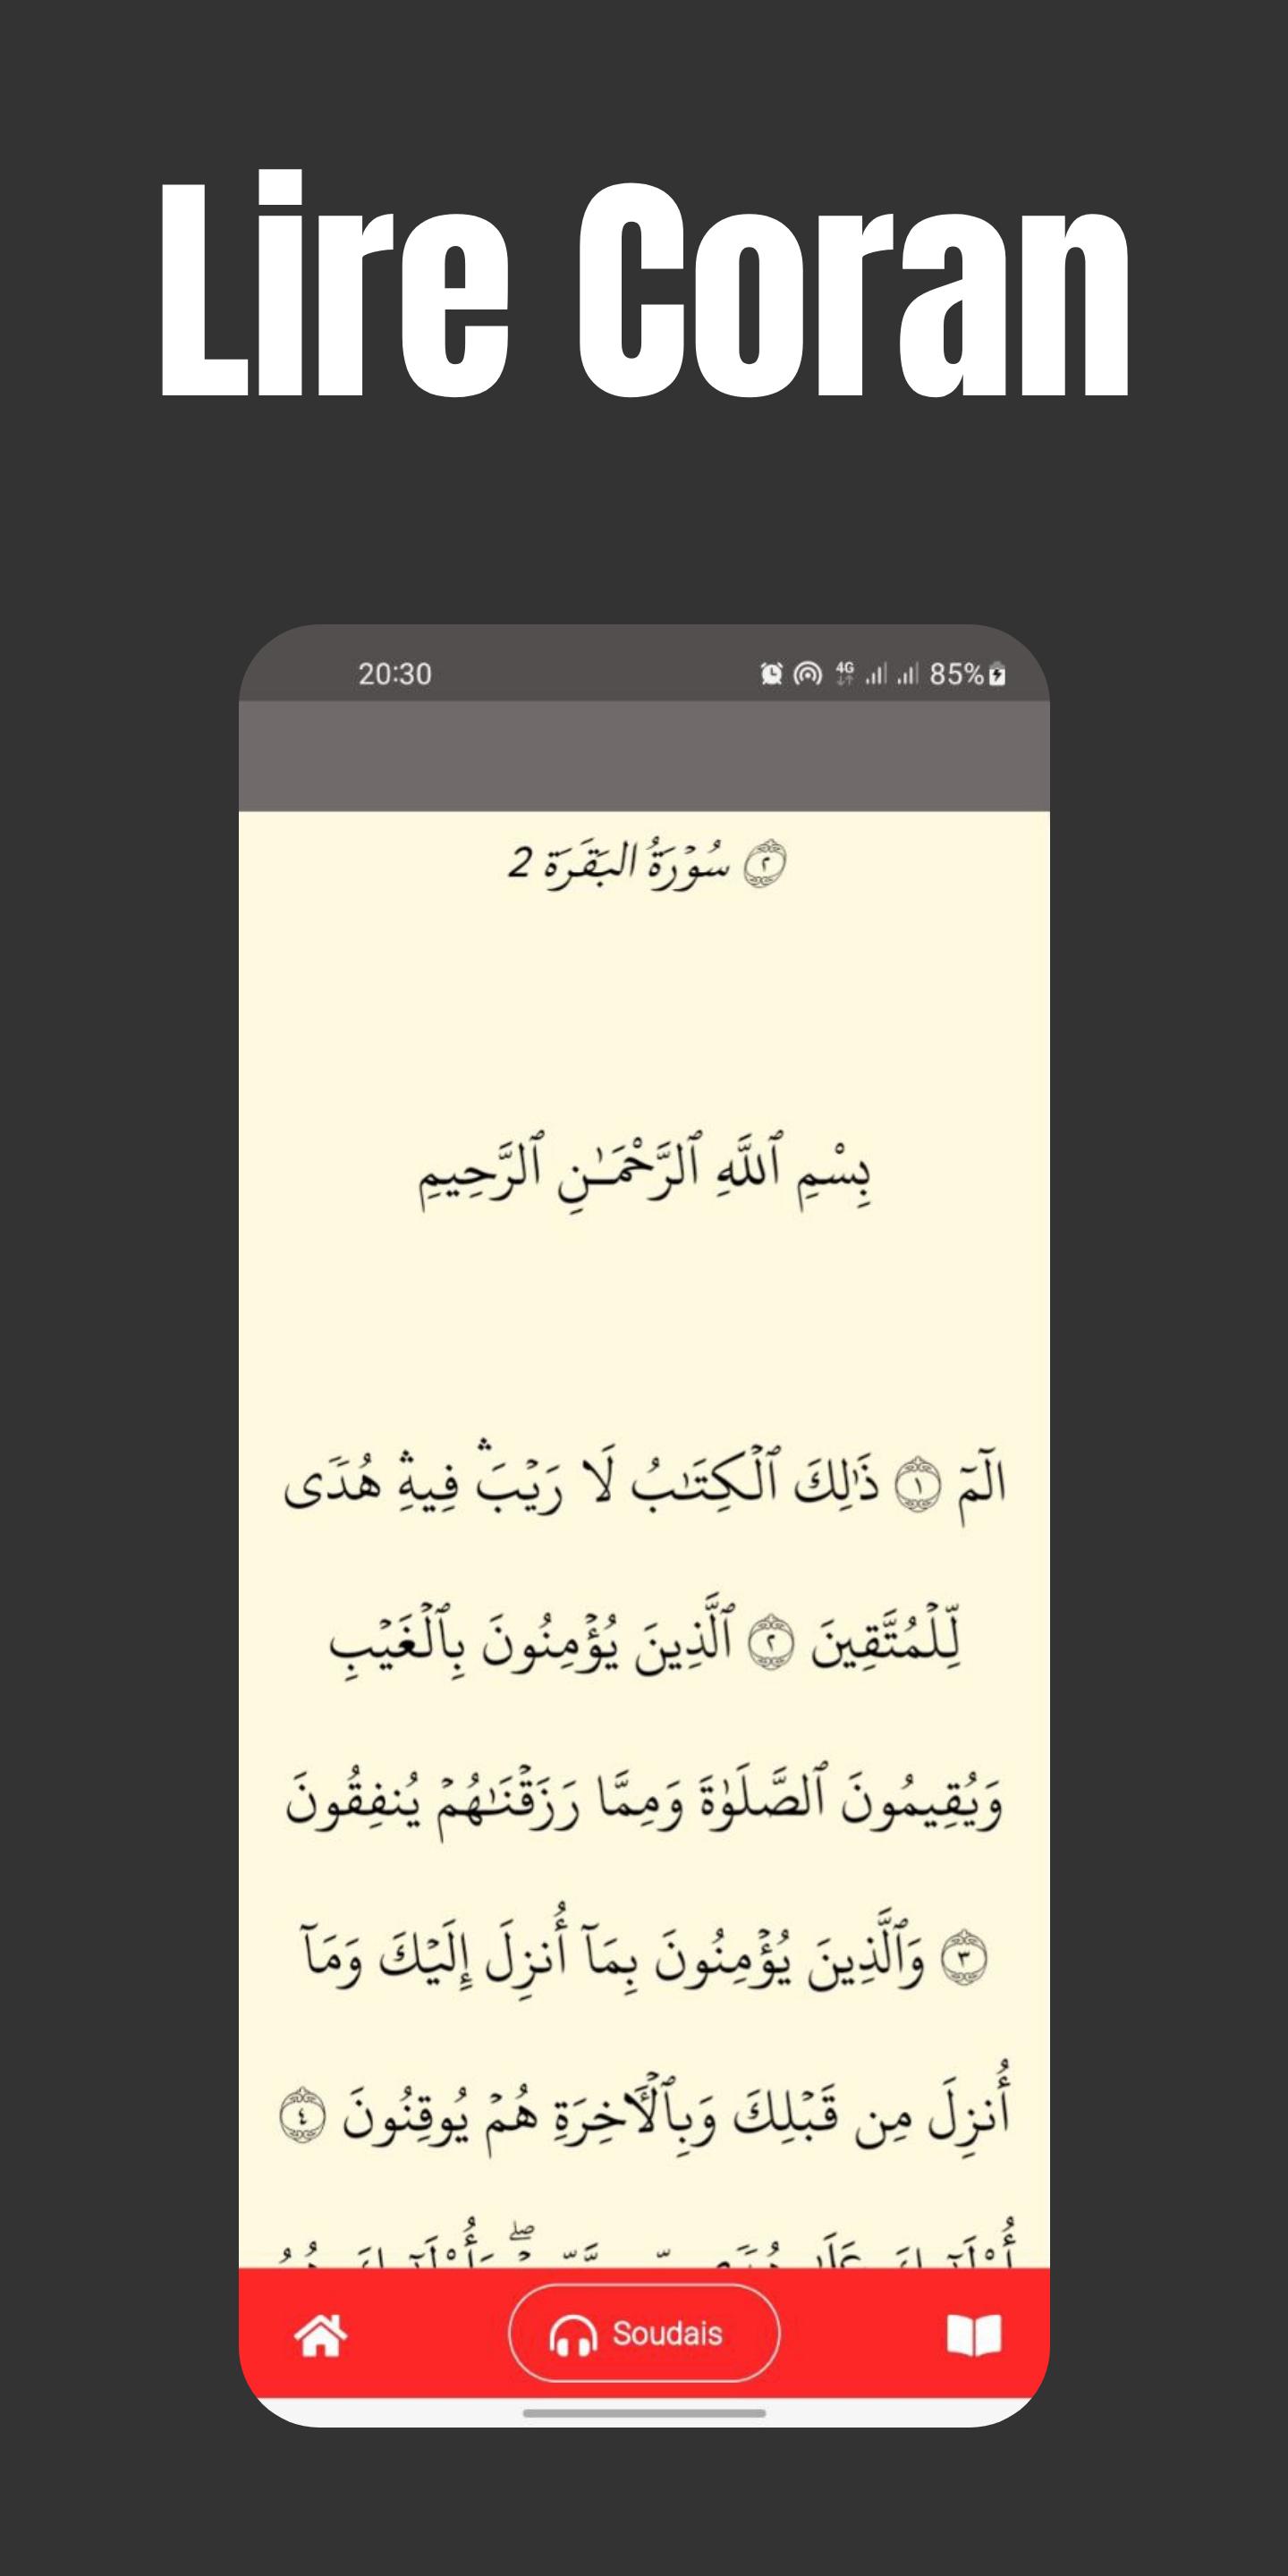 Lire Coran
20:30 4G 85%
۝٢ سُوۡرَةُ البَقَرَة 2
بِسْمِ ٱللَّهِ ٱلرَّحْمَـٰنِ ٱلرَّحِيمِ
الٓمٓ ۝١ ذَٰلِكَ ٱلۡكِتَـٰبُ لَا رَيۡبَۛ فِيهِۛ هُدٗى
لِّلۡمُتَّقِينَ ۝٢ ٱلَّذِينَ يُؤۡمِنُونَ بِٱلۡغَيۡبِ
وَيُقِيمُونَ ٱلصَّلَوٰةَ وَمِمَّا رَزَقۡنَـٰهُمۡ يُنفِقُونَ
۝٣ وَٱلَّذِينَ يُؤۡمِنُونَ بِمَآ أُنزِلَ إِلَيۡكَ وَمَآ
أُنزِلَ مِن قَبۡلِكَ وَبِٱلۡأٓخِرَةِ هُمۡ يُوقِنُونَ ۝٤
Soudais